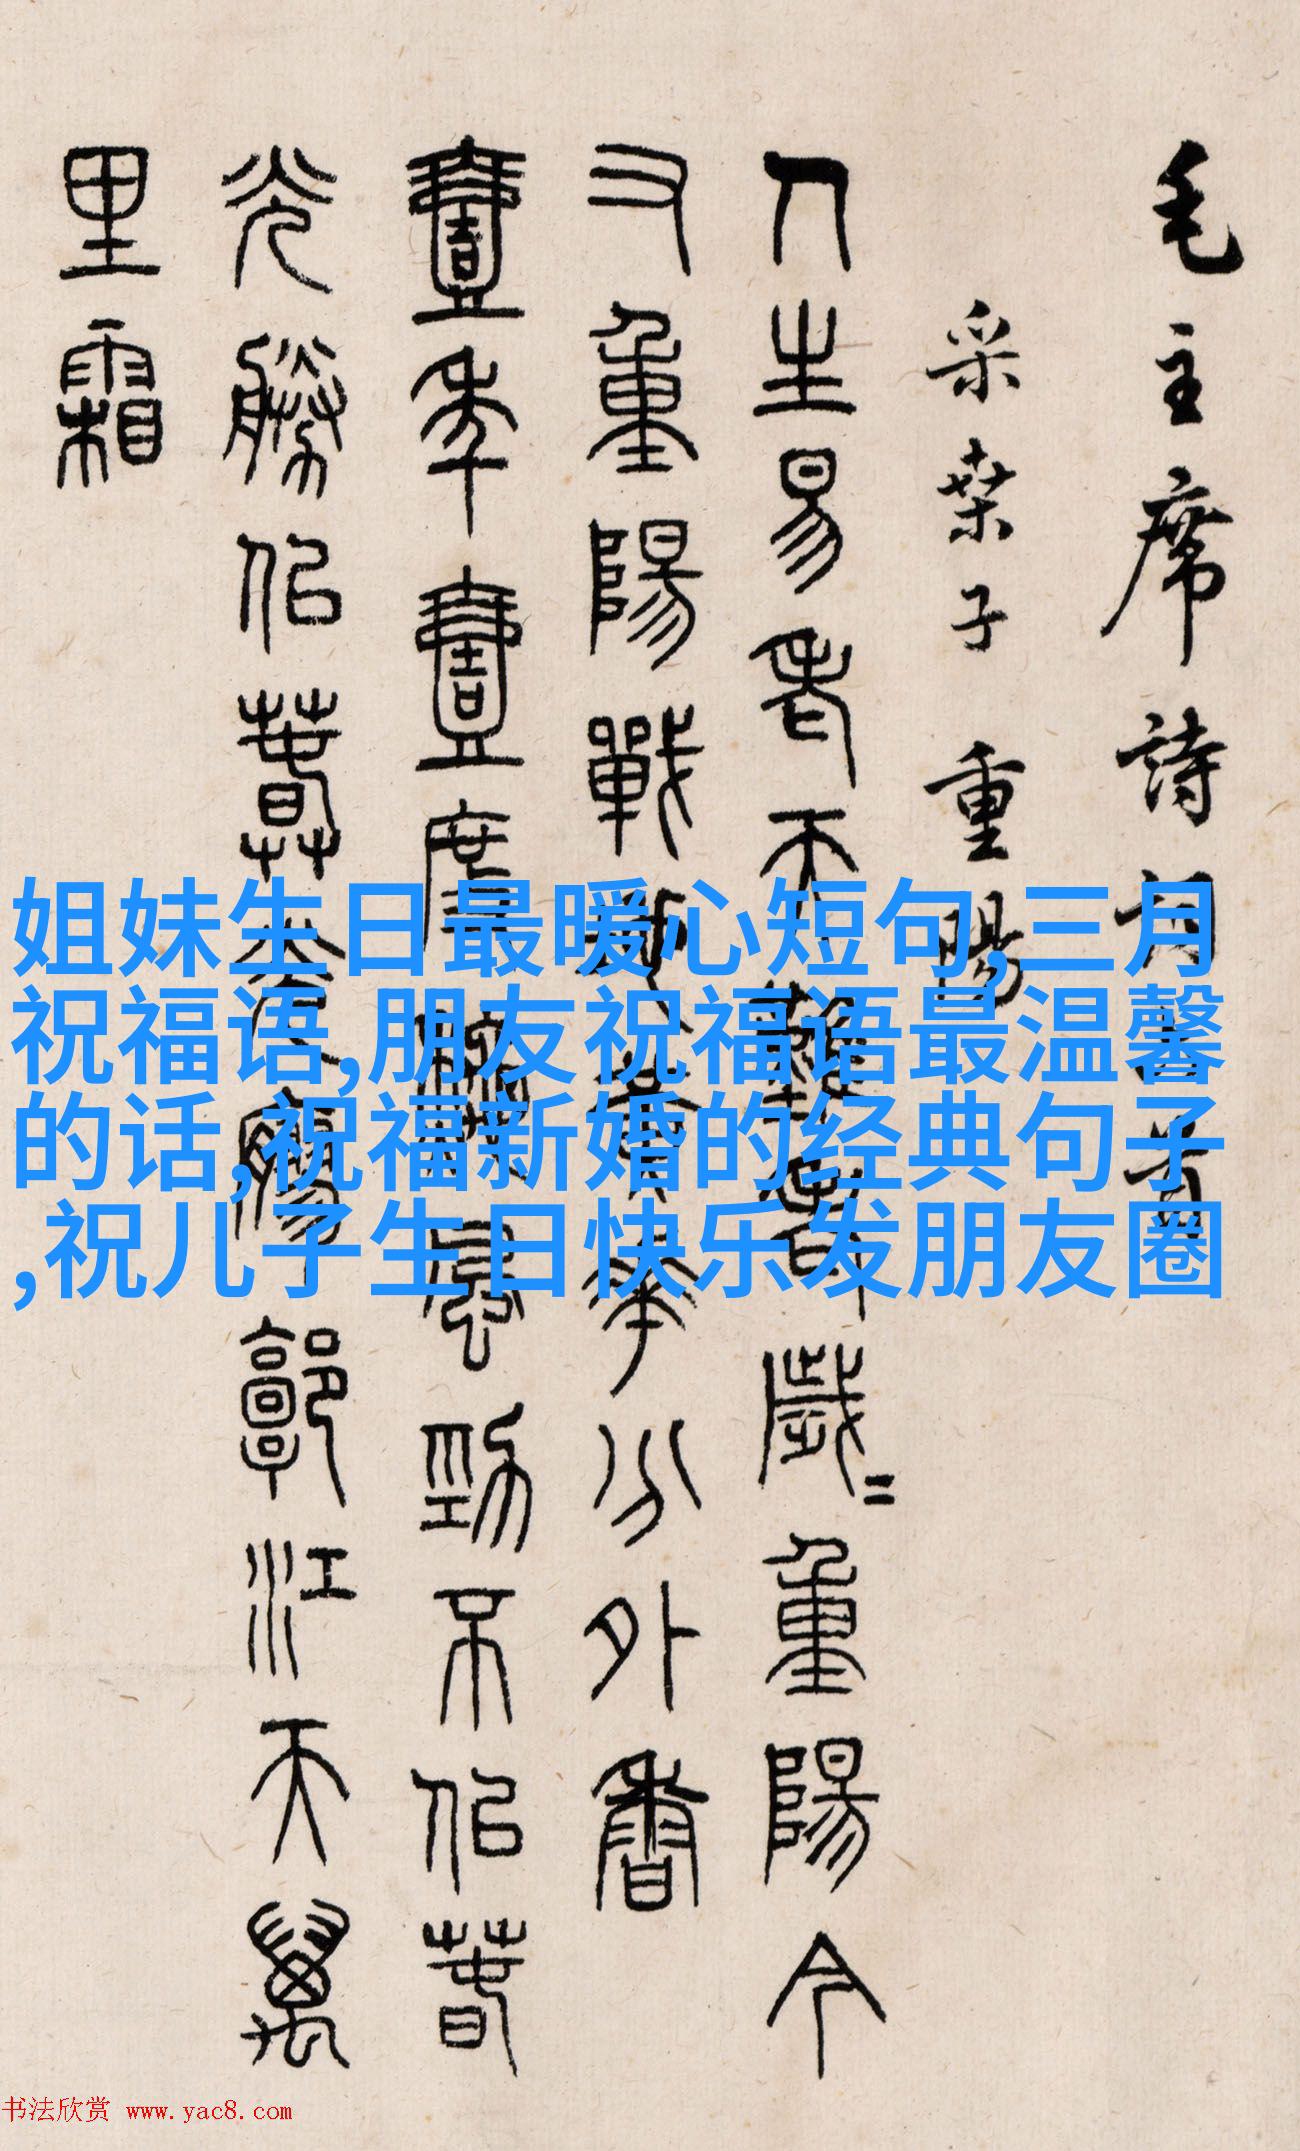 毛主席詩詞
采桒子 重陽
人生易老天難老歲〻重陽今
又重陽戰地黃華分外香
壹年壹度秋風勁不佀春
光勝佀春光寥郭江天萬
里霜
姐妹生日最暖心短句,三月
祝福语,朋友祝福语最温馨
的话,祝福新婚的经典句子
,祝儿子生日快乐发朋友圈
书法欣赏 www.yac8.com